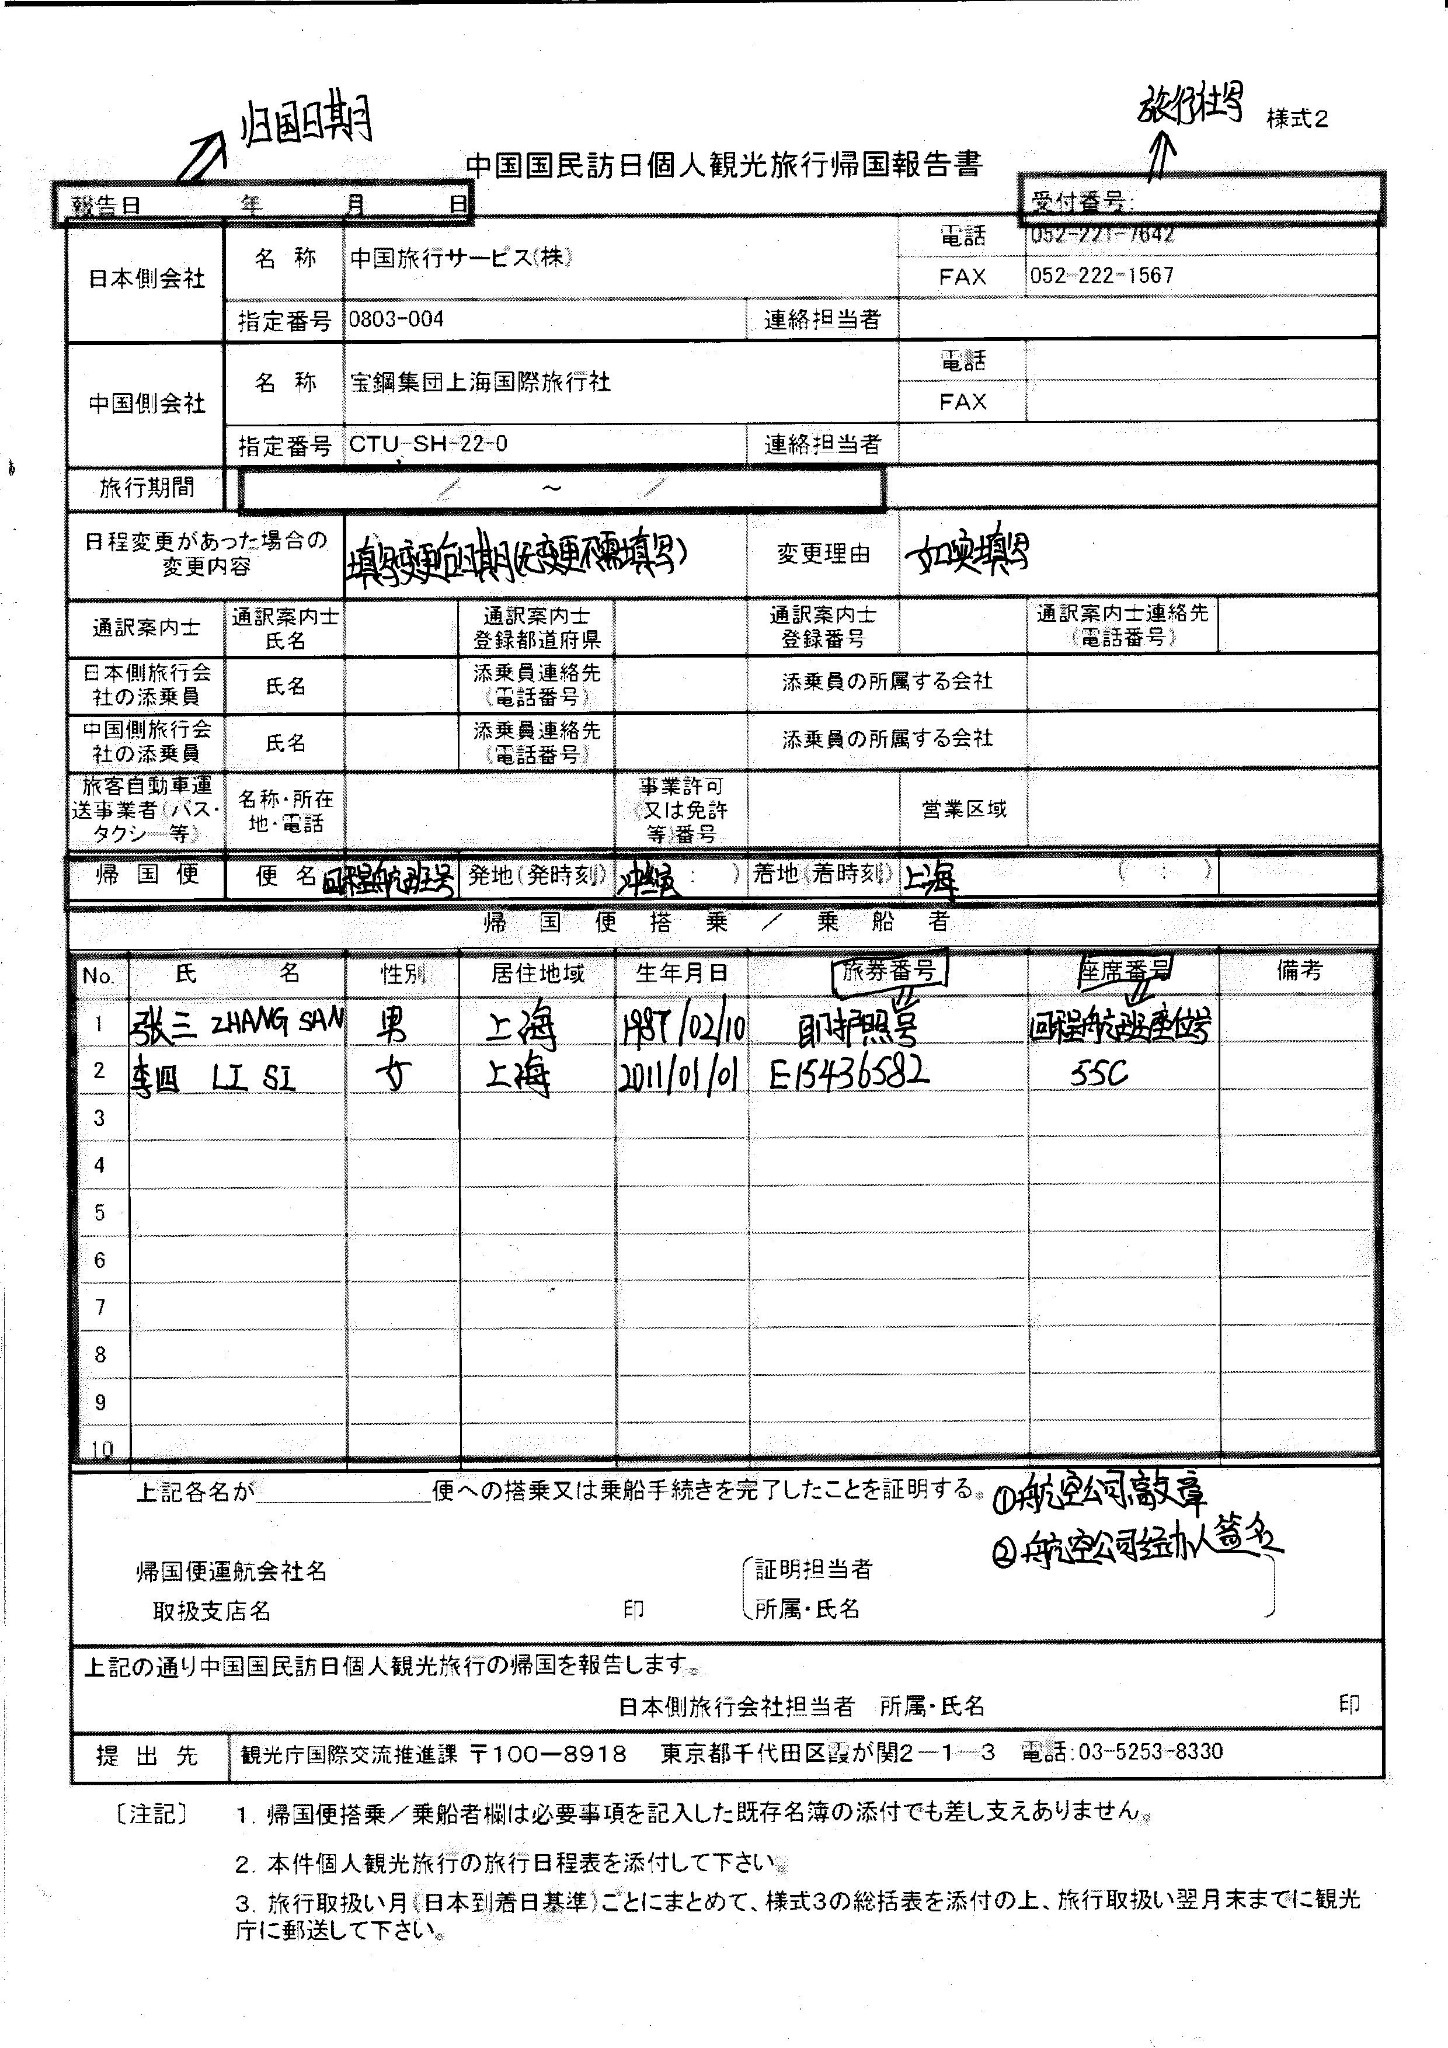 归国日期
旅行社写
様式2
中国国民訪日個人観光旅行帰国報告書
報告日 年 月 日
受付番号:
日本側会社 名 称 中国旅行サービス(株) 電話 052-221-7642
FAX 052-222-1567
指定番号 0803-004 連絡担当者
中国側会社 名 称 宝鋼集団上海国際旅行社 電話
FAX
指定番号 CTU-SH-22-0 連絡担当者
旅行期間 / ~ /
日程変更があった場合の
変更内容
填写变更后日期(无变更不需填写)
変更理由 如实填写
通訳案内士 通訳案内士
氏名
通訳案内士
登録都道府県
通訳案内士
登録番号
通訳案内士連絡先
(電話番号)
日本側旅行会
社の添乗員
氏名
添乗員連絡先
(電話番号)
添乗員の所属する会社
中国側旅行会
社の添乗員
氏名
添乗員連絡先
(電話番号)
添乗員の所属する会社
旅客自動車運
送事業者(バス・
タクシー等)
名称・所在
地・電話
事業許可
(又は免許
等)番号
営業区域
帰国便 便名 回程航班号 発地(発時刻) 冲绳( : ) 着地(着時刻) 上海 ( : )
帰国便搭乗/乗船者
No. 氏 名 性別 居住地域 生年月日 旅券番号 座席番号 備考
1 张三 ZHANG SAN 男 上海 1987/02/10 即护照号 回程航班座位号
2 李四 LI SI 女 上海 2011/01/01 E15436582 55C
3
4
5
6
7
8
9
10
上記各名が 便への搭乗又は乗船手続きを完了したことを証明する。
①航空公司敲章
②航空公司经办人签名
帰国便運航会社名 (証明担当者
取扱支店名 印 所属・氏名 )
上記の通り中国国民訪日個人観光旅行の帰国を報告します。
日本側旅行会社担当者 所属・氏名 印
提出先 観光庁国際交流推進課 〒100-8918 東京都千代田区霞が関2-1-3 電話:03-5253-8330
〔注記〕 1. 帰国便搭乗/乗船者欄は必要事項を記入した既存名簿の添付でも差し支えありません。
2. 本件個人観光旅行の旅行日程表を添付して下さい。
3. 旅行取扱い月(日本到着日基準)ごとにまとめて、様式3の総括表を添付の上、旅行取扱い翌月末までに観光
庁に郵送して下さい。